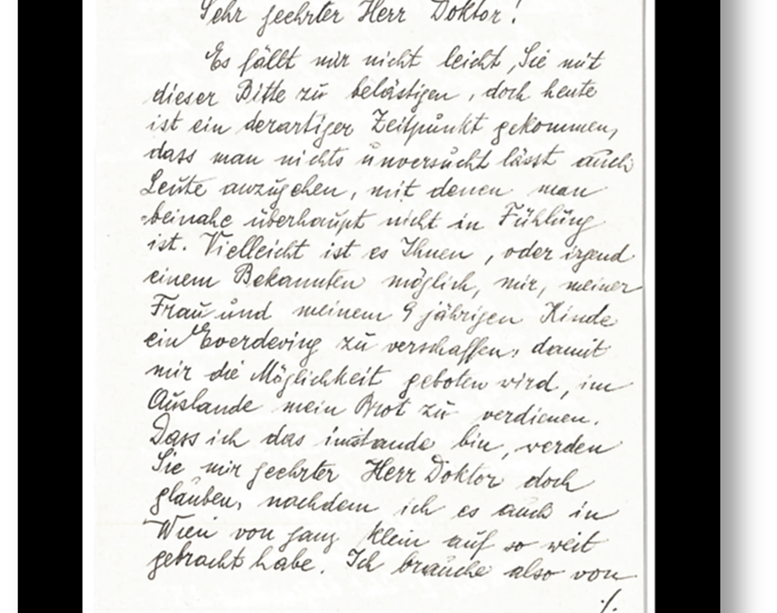 Sehr geehrter Herr Doktor!
Es fällt mir nicht leicht, Sie mit
dieser Bitte zu belästigen, doch heute
ist ein derartiger Zeitpunkt gekommen,
dass man nichts unversucht lässt auch
Leute anzugehen, mit denen man
beinahe überhaupt nicht in Fühlung
ist. Vielleicht ist es Ihnen, oder irgend
einem Bekannten möglich, mir, meiner
Frau und meinem 9 jährigen Kinde
ein zu verschaffen, damit
mir die Möglichkeit geboten wird, im
Auslande mein Brot zu verdienen.
Dass ich das imstande bin, werden
Sie mir geehrter Herr Doktor doch
glauben, nachdem ich es auch in
Wien von ganz klein auf so weit
gebracht habe. Ich brauche also von
./.